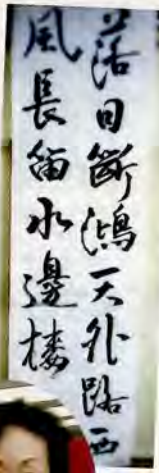 落日斷鴻天外路西
風長笛水邊樓